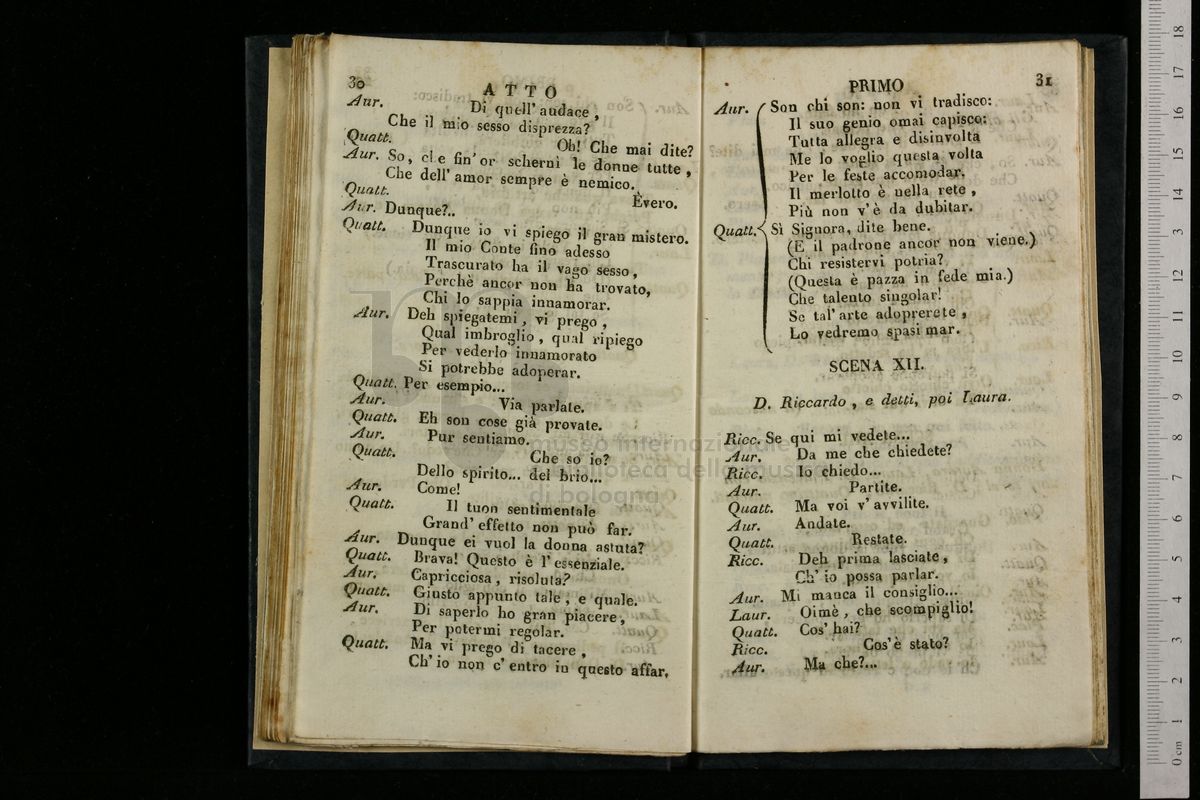 30
ATTO
Aur. Di quell' audace,
Che il mio sesso disprezza?
Quatt. Oh! Che mai dite?
Aur. So, che fin' or schernì le donne tutte,
Che dell' amor sempre è nemico.
Quatt. Èvero.
Aur. Dunque?..
Quatt. Dunque io vi spiego il gran mistero.
Il mio Conte fino adesso
Trascurato ha il vago sesso,
Perchè ancor non ha trovato,
Chi lo sappia innamorar.
Aur. Deh spiegatemi, vi prego,
Qual imbroglio, qual ripiego
Per vederlo innamorato
Si potrebbe adoperar.
Quatt. Per esempio...
Aur. Via parlate.
Quatt. Eh son cose già provate.
Aur. Pur sentiamo.
Quatt. Che so io?
Dello spirito... del brio...
Aur. Come!
Quatt. Il tuon sentimentale
Grand' effetto non può far.
Aur. Dunque ei vuol la donna astuta?
Quatt. Brava! Questo è l' essenziale.
Aur. Capricciosa, risoluta?
Quatt. Giusto appunto tale, e quale.
Aur. Di saperlo ho gran piacere,
Per potermi regolar.
Quatt. Ma vi prego di tacere,
Ch' io non c' entro in questo affar.
PRIMO
31
Aur. Son chi son: non vi tradisco:
Il suo genio omai capisco:
Tutta allegra e disinvolta
Me lo voglio questa volta
Per le feste accomodar.
Il merlotto è nella rete,
Più non v' è da dubitar.
Quatt. Sì Signora, dite bene.
(E il padrone ancor non viene.)
Chi resistervi potria?
(Questa è pazza in fede mia.)
Che talento singolar!
Se tal' arte adoprerete,
Lo vedremo spasimar.
SCENA XII.
D. Riccardo, e detti, poi Laura.
Ricc. Se qui mi vedete...
Aur. Da me che chiedete?
Ricc. Io chiedo...
Aur. Partite.
Quatt. Ma voi v' avvilite.
Aur. Andate.
Quatt. Restate.
Ricc. Deh prima lasciate,
Ch' io possa parlar.
Aur. Mi manca il consiglio...
Laur. Oimè, che scompiglio!
Quatt. Cos' hai?
Ricc. Cos' è stato?
Aur. Ma che?...
museo internazionale
e biblioteca della musica
di bologna
0 cm 1 2 3 4 5 6 7 8 9 10 11 12 13 14 15 16 17 18